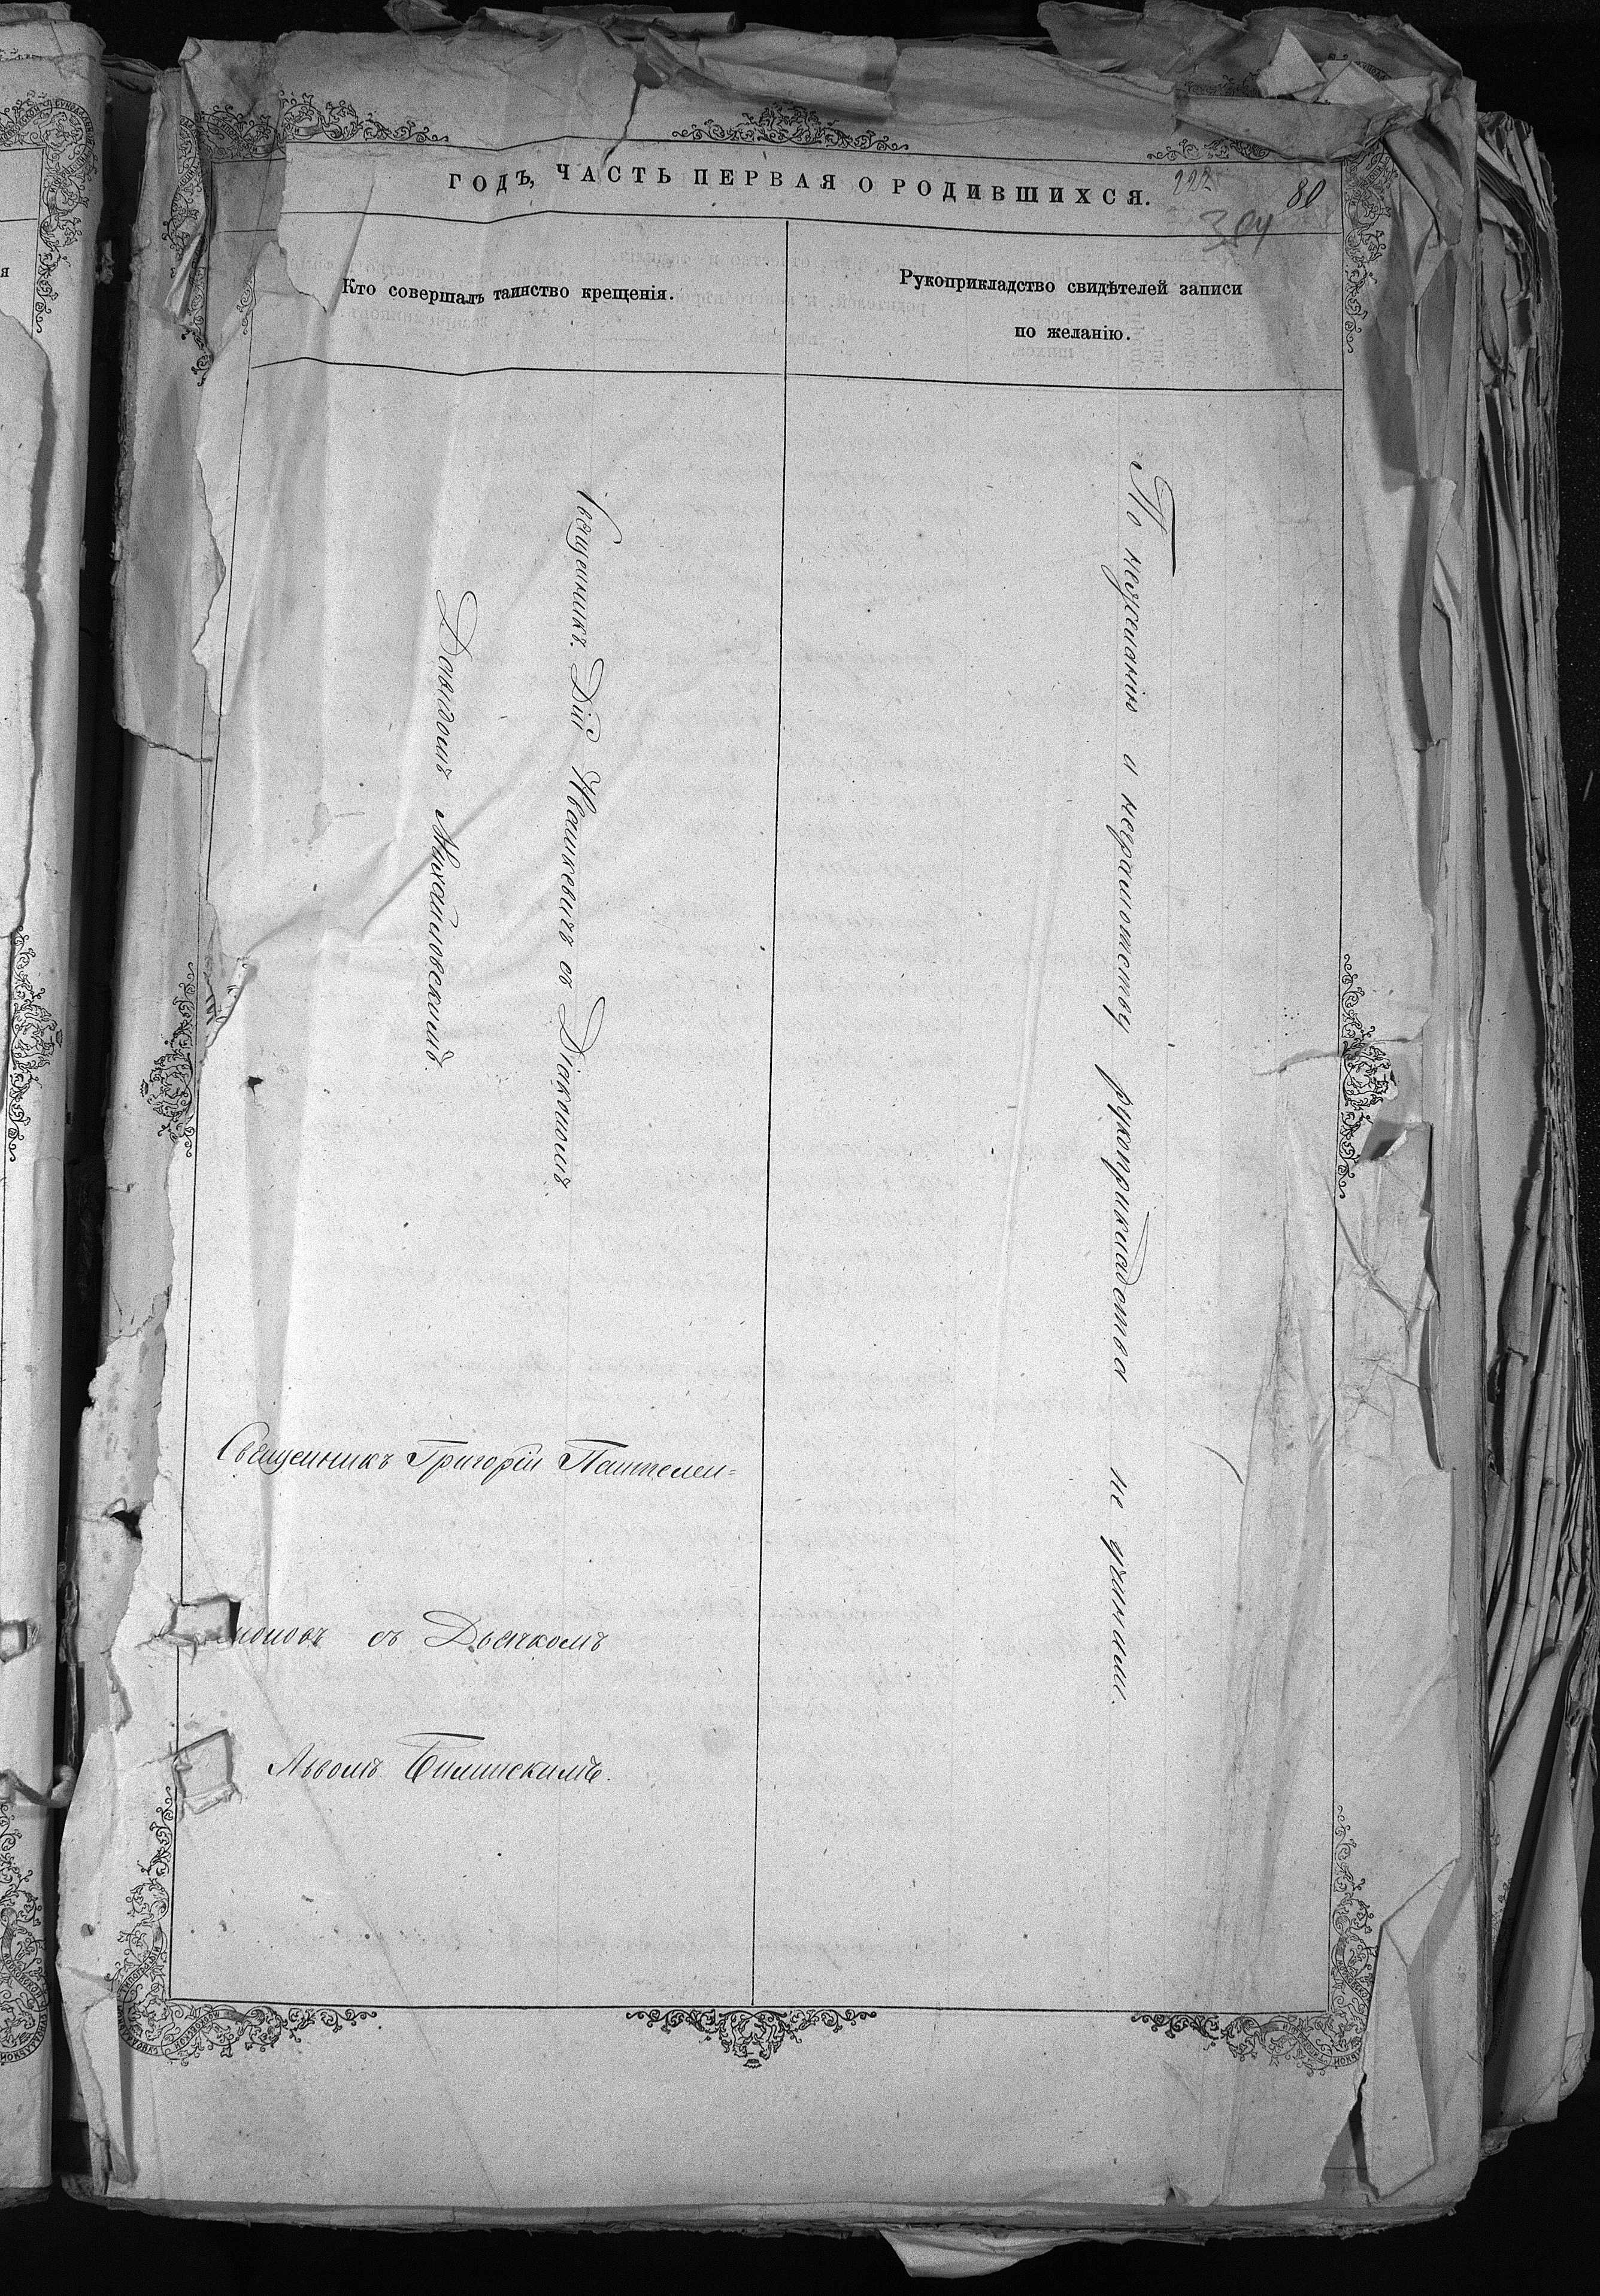 ГОДЪ, ЧАСТЬ ПЕРВАЯ О РОДИВШИХСЯ.
222
80
304
Кто совершалъ таинство крещенія.
Рукоприкладство свидѣтелей записи
по желанію.
Священникъ Дій Ивашкевичъ съ Діакономъ
Давидомъ Михайловскимъ.
По нежеланію и неграмотству рукоприкладства не учинили.
Священникъ Григорій Пантелеи=
моновъ съ Дьячкомъ
Львомъ Билинскимъ.